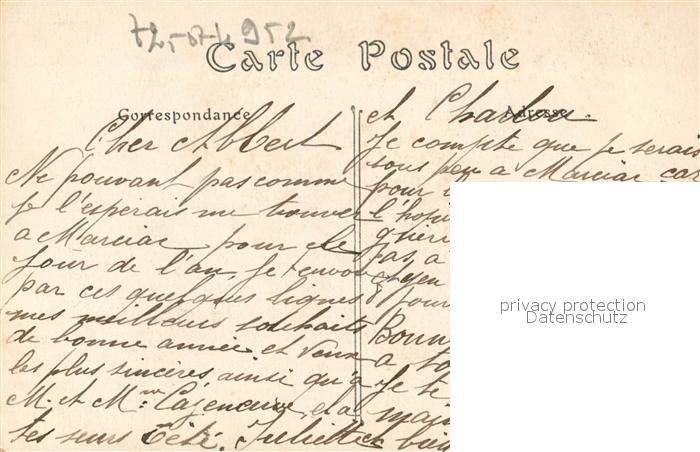 72-07-4952
Carte Postale
Correspondance
Adresse
Cher Albert
Ne pouvant pas comme
je l'esperais me trouver
a Marciac pour le
jour de l'an je t'envoie
par ces quelques lignes
mes meilleurs souhaits
de bonne année et veux
les plus sincères ainsi qu'à
M. et Mme et à
tes seurs Juliette
et Charlou.
Je compte que je serais
sous peu a Marciac car
pour
l'hop
guéri
pas a
jour
Bonn
a to
Je te
mais
bie
privacy protection
Datenschutz